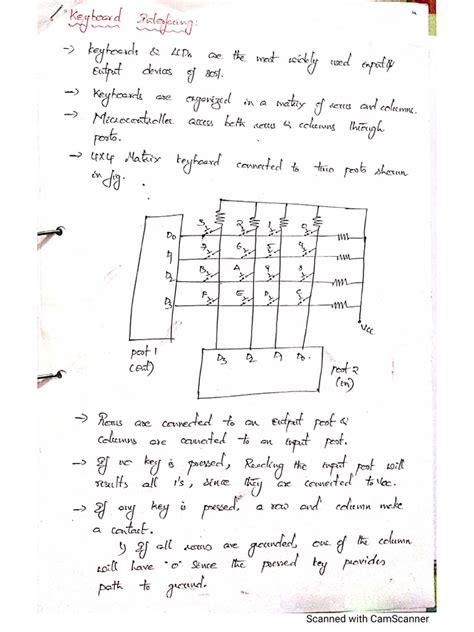 Keyboard Interfacing:
-> Keyboards & LCDs are the most widely used input &
output devices of 8051.
-> Keyboards are organized in a matrix of rows and columns.
-> Microcontroller access both rows & columns through
ports.
-> 4x4 Matrix keyboard connected to two ports shown
in fig.
3 2 1 0
D0
7 6 5 4
D1
B A 9 8
D2
F E D C
D3
Vcc
port 1
(out)
D3 D2 D1 D0
port 2
(in)
-> Rows are connected to an output port &
columns are connected to an input port.
-> If no key is pressed, Reading the input port will
results all 1's, since they are connected to Vcc.
-> If any key is pressed, a row and column make
a contact.
1) If all rows are grounded, one of the column
will have '0' since the pressed key provides
path to ground.
Scanned with CamScanner